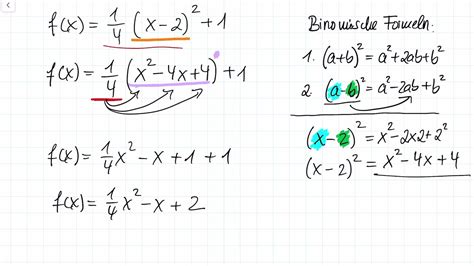 f(x) = 1/4 (x-2)² + 1
f(x) = 1/4 (x² - 4x + 4) + 1
f(x) = 1/4 x² - x + 1 + 1
f(x) = 1/4 x² - x + 2
Binomische Formeln:
1. (a+b)² = a² + 2ab + b²
2. (a-b)² = a² - 2ab + b²
(x-2)² = x² - 2x2 + 2²
(x-2)² = x² - 4x + 4